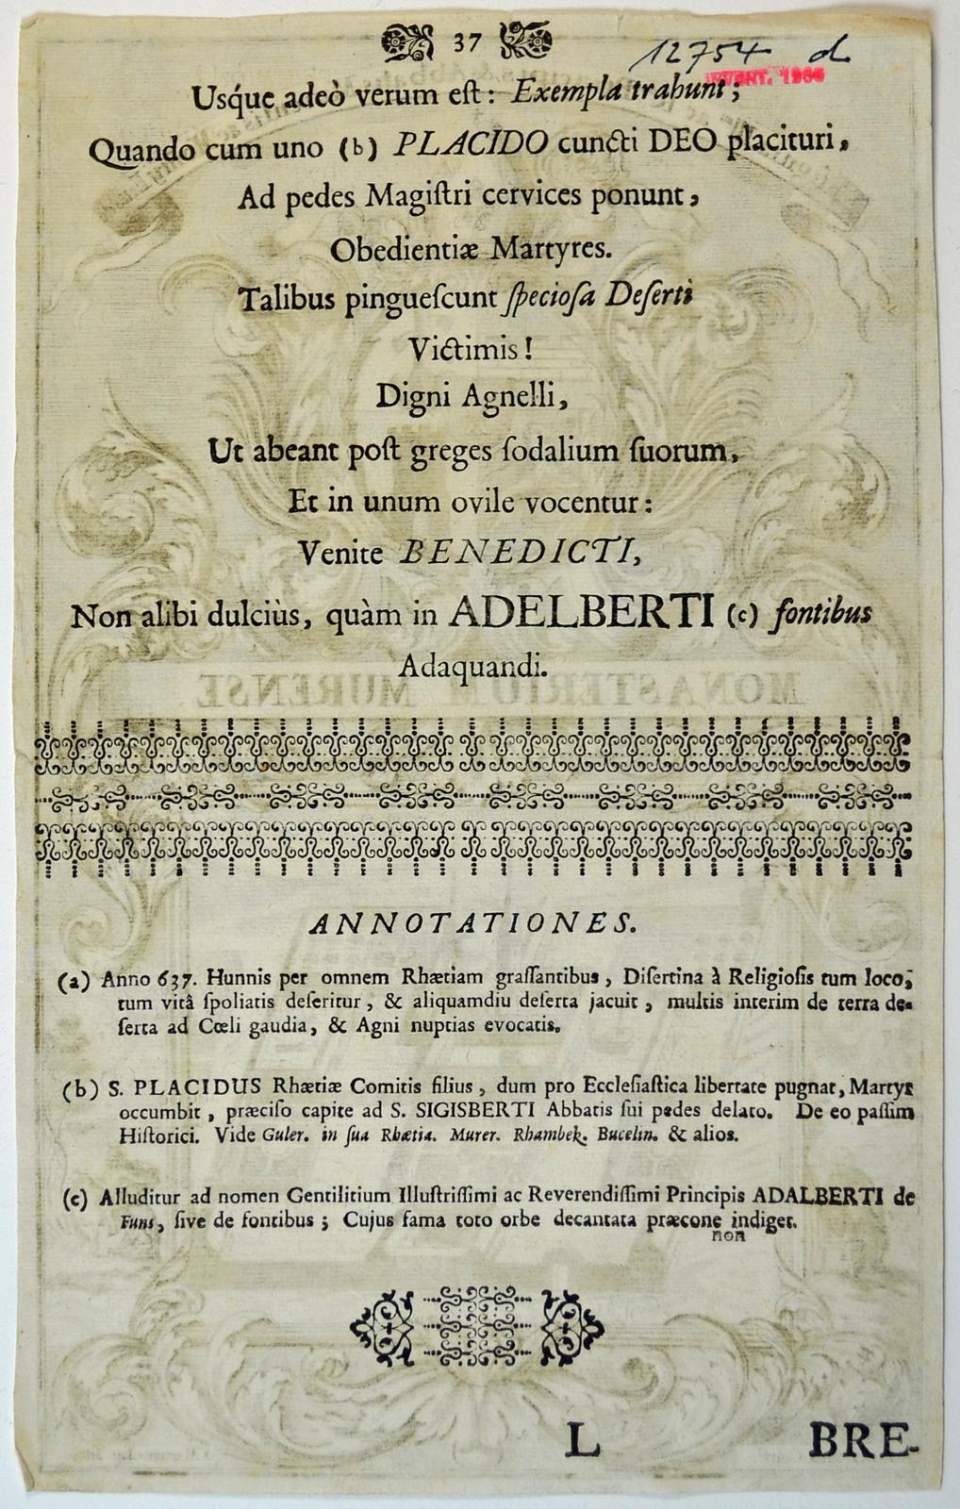 37
12754 d
INVENT. 1966
Usq́ue adeò verum eſt: Exempla trahunt;
Quando cum uno (b) PLACIDO cuncti DEO placituri,
Ad pedes Magiſtri cervices ponunt,
Obedientiæ Martyres.
Talibus pingueſcunt ſpecioſa Deſerti
Victimis!
Digni Agnelli,
Ut abeant poſt greges ſodalium ſuorum,
Et in unum ovile vocentur:
Venite BENEDICTI,
Non alibi dulciùs, quàm in ADELBERTI (c) fontibus
Adaquandi.
MONASTERIO MURENSE
ANNOTATIONES.
(a) Anno 637. Hunnis per omnem Rhætiam graſſantibus, Diſertina à Religioſis tum loco,
tum vitâ ſpoliatis deſeritur, & aliquamdiu deſerta jacuit, multis interim de terra de-
ſerta ad Cœli gaudia, & Agni nuptias evocatis.
(b) S. PLACIDUS Rhætiæ Comitis filius, dum pro Eccleſiaſtica libertate pugnat, Martyr
occumbit, præciſo capite ad S. SIGISBERTI Abbatis ſui pedes delato. De eo paſſim
Hiſtorici. Vide Guler. in ſua Rhætia. Murer. Rhambek. Bucelin. & alios.
(c) Alluditur ad nomen Gentilitium Illuſtriſſimi ac Reverendiſſimi Principis ADALBERTI de
Funs, ſive de fontibus; Cujus fama toto orbe decantata præcone indiget.
non
L BRE-